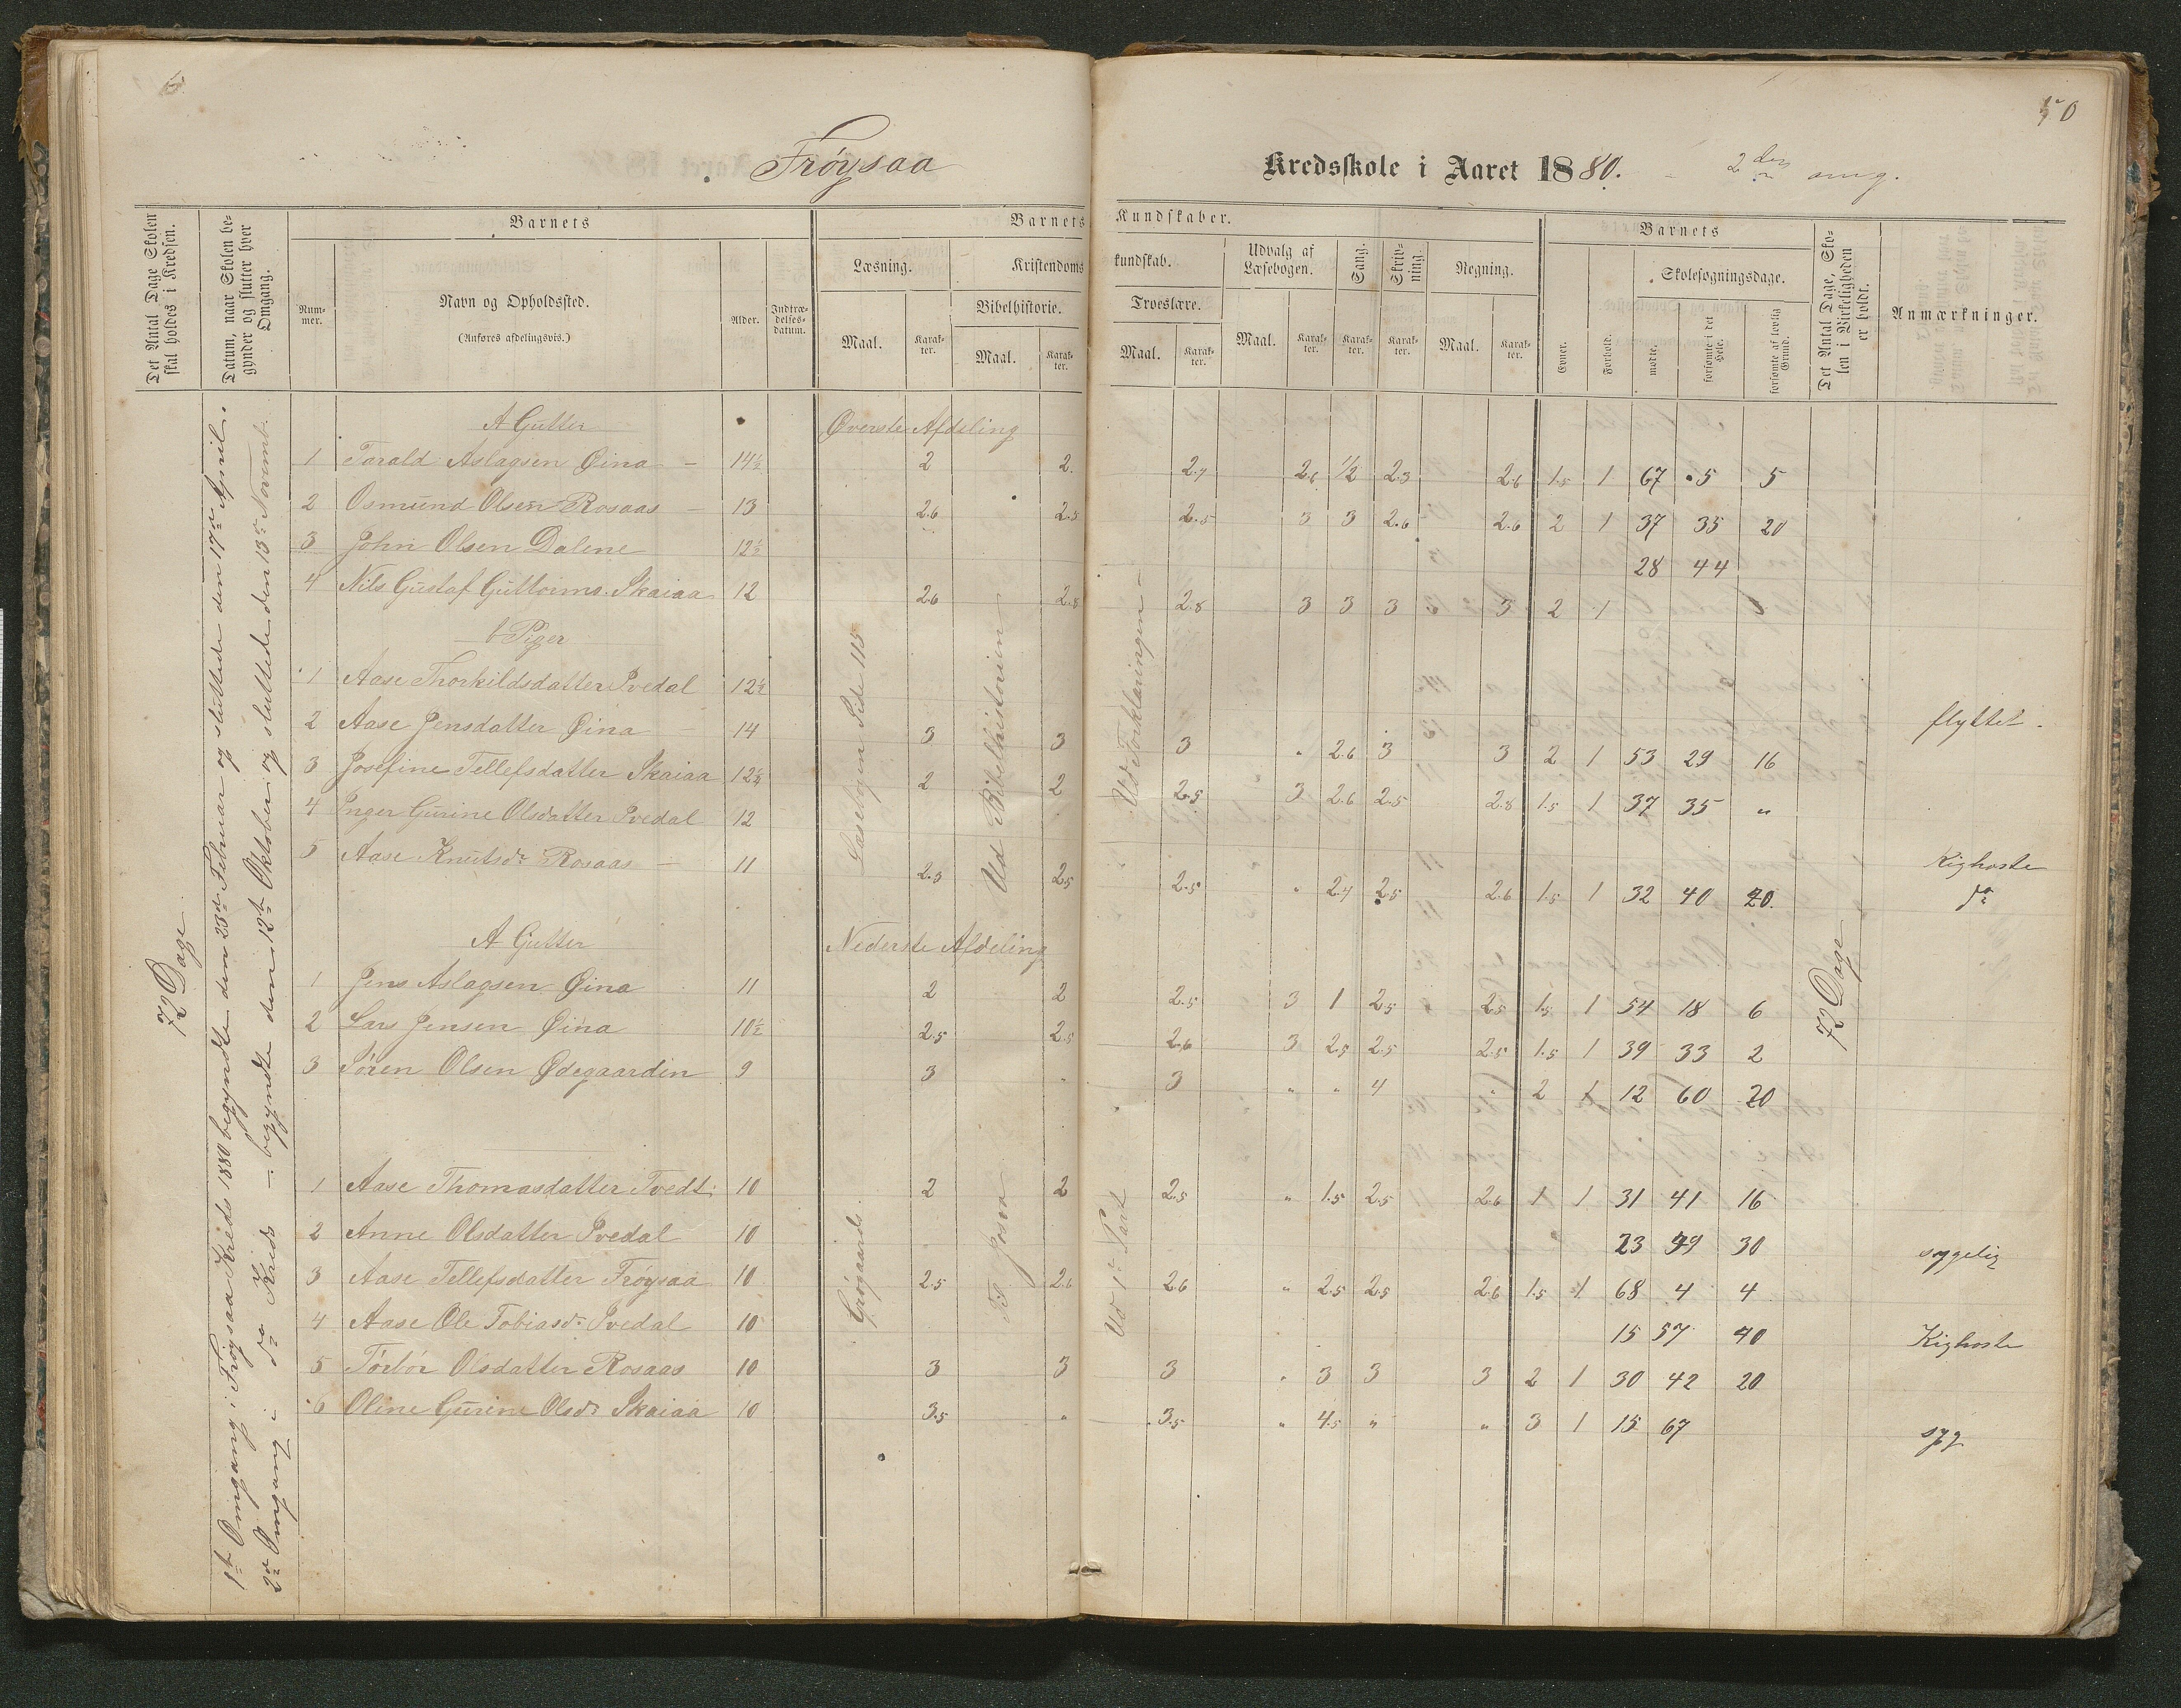 6
50
Frøysaa
Kredsskole i Aaret 1880. - 2den omg.
Det Antal Dage Skolen skal holdes i Kredsen.
Datum, naar Skolen begynder og slutter hver Omgang.
Barnets
Num-
mer.
Navn og Opholdssted.
(Anføres afdelingsvis.)
Alder.
Indtræ-
delses-
datum.
Barnets Kundskaber.
Læsning.
Kristendomskundskab.
Udvalg af
Læsebogen.
Sang.
Skriv-
ning.
Regning.
Bibelhistorie.
Troeslære.
Maal.
Karak-
ter.
Maal.
Karak-
ter.
Maal.
Karak-
ter.
Maal.
Karak-
ter.
Karak-
ter.
Karak-
ter.
Maal.
Karak-
ter.
Barnets
Evner.
Forhold.
Skolesøgningsdage.
mødte.
forsømte i det Hele.
forsømte af lovlig Grund.
Det Antal Dage, Skolen i Virkeligheden er holdt.
Anmærkninger.
72 Dage
1ste Omgang i Frøysaa Kreds 1880 begyndte den 23de Februar og sluttede den 17de April.
2den Omgang i do Kreds - begyndte den 12te Oktober og sluttede den 13de Novemb.
A Gutter Øverste Afdeling
1 Tarald Aslagsen Øina - 14½ 2 2. 2.7 2.6 ½ 2.3 2.6 1.5 1 67 5 5
2 Osmund Olsen Rosaas - 13 2.6 2.5 2.5 3 3 2.6 2.6 2 1 37 35 20
3 John Olsen Dalene 12½ 28 44
4 Nils Gustaf Guttorms. Skaiaa 12 2.6 2.8 2.8 3 3 3 3 2 1
b Piger
1 Aase Thorkildsdatter Pvedal 12½ flyttet.
2 Aase Jensdatter Øina - 14 3 3 3 " 2.6 3 3 2 1 53 29 16
3 Josefine Tellefsdatter Skaiaa 12½ 2 2 2.5 3 2.6 2.5 2.8 1.5 1 37 35 "
4 Inger Gurine Olsdatter Pvedal 12 Kighoste
5 Aase Knutsdr Rosaas - 11 2.3 2.5 2.5 " 2.7 2.5 2.6 1.5 1 32 40 20. do
Læsebogen Side 115
Ud Bibelhistorien
Ud Forklaringen
A Gutter Nederste Afdeling
1 Jens Aslagsen Øina 11 2 2 2.5 3 1 2.5 2.5 1.5 1 54 18 6
2 Lars Jensen Øina 10½ 2.5 2.5 2.6 3 2.5 2.5 2.5 1.5 1 39 33 2
3 Søren Olsen Ødegaarden 9 3 " 3 " " 4 " 2 1 12 60 20
72 Dage
1 Aase Thomasdatter Tvedt 10 2 2 2.5 " 1.5 2.5 2.6 1 1 31 41 16
2 Anne Olsdatter Pvedal 10 23 49 30 sygelig
3 Aase Tellefsdatter Frøysaa 10 2.5 2.6 2.6 " 2.5 2.5 2.6 1.5 1 68 4 4
4 Aase Ole Tobiasdr Pvedal 10 15 57 40 Kighoste
5 Torbør Olsdatter Rosaas 10 3 3 3 " 3 3 3 2 1 30 42 20
6 Oline Gurine Olsdr Skaiaa 10 3.5 " 3.5 " 4.5 " " 3 1 15 67 syg
Grøgaards
Til Josva
Ud 1ste Part